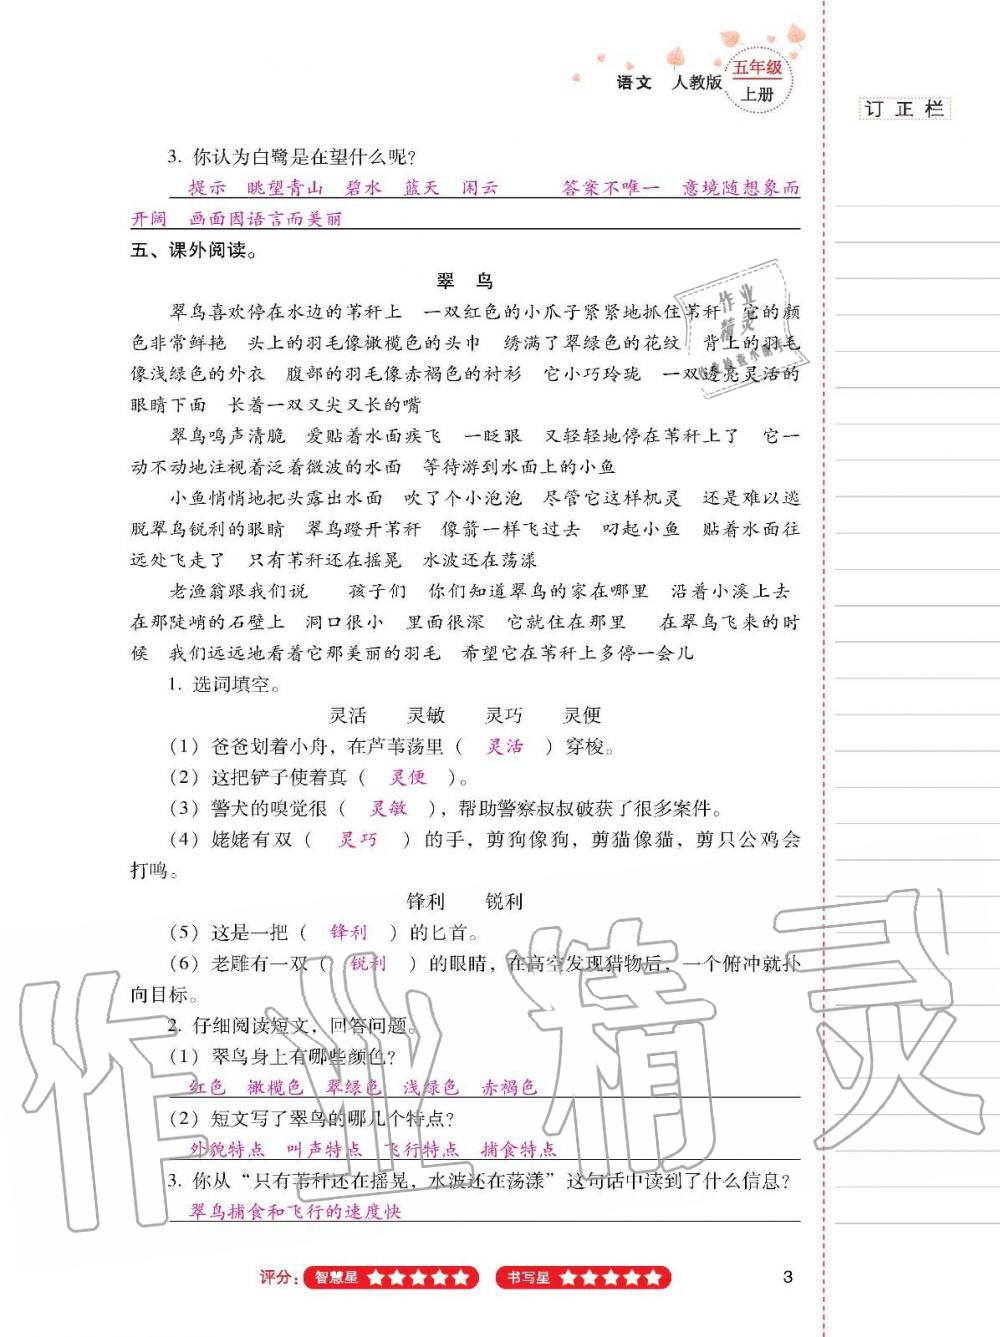 语文 人教版 五年级
上册
订正栏
3. 你认为白鹭是在望什么呢?
提示 眺望青山 碧水 蓝天 闲云 答案不唯一 意境随想象而
开阔 画面因语言而美丽
五、课外阅读。
翠 鸟
翠鸟喜欢停在水边的苇秆上 一双红色的小爪子紧紧地抓住苇秆 它的颜
色非常鲜艳 头上的羽毛像橄榄色的头巾 绣满了翠绿色的花纹 背上的羽毛
像浅绿色的外衣 腹部的羽毛像赤褐色的衬衫 它小巧玲珑 一双透亮灵活的
眼睛下面 长着一双又尖又长的嘴
翠鸟鸣声清脆 爱贴着水面疾飞 一眨眼 又轻轻地停在苇秆上了 它一
动不动地注视着泛着微波的水面 等待游到水面上的小鱼
小鱼悄悄地把头露出水面 吹了个小泡泡 尽管它这样机灵 还是难以逃
脱翠鸟锐利的眼睛 翠鸟蹬开苇秆 像箭一样飞过去 叼起小鱼 贴着水面往
远处飞走了 只有苇秆还在摇晃 水波还在荡漾
老渔翁跟我们说 孩子们 你们知道翠鸟的家在哪里 沿着小溪上去
在那陡峭的石壁上 洞口很小 里面很深 它就住在那里 在翠鸟飞来的时
候 我们远远地看着它那美丽的羽毛 希望它在苇秆上多停一会儿
1. 选词填空。
灵活 灵敏 灵巧 灵便
(1) 爸爸划着小舟,在芦苇荡里( 灵活 )穿梭。
(2) 这把铲子使着真( 灵便 )。
(3) 警犬的嗅觉很( 灵敏 ),帮助警察叔叔破获了很多案件。
(4) 姥姥有双( 灵巧 )的手,剪狗像狗,剪猫像猫,剪只公鸡会
打鸣。
锋利 锐利
(5) 这是一把( 锋利 )的匕首。
(6) 老雕有一双( 锐利 )的眼睛,在高空发现猎物后,一个俯冲就扑
向目标。
2. 仔细阅读短文,回答问题。
(1) 翠鸟身上有哪些颜色?
红色 橄榄色 翠绿色 浅绿色 赤褐色
(2) 短文写了翠鸟的哪几个特点?
外貌特点 叫声特点 飞行特点 捕食特点
3. 你从“只有苇秆还在摇晃,水波还在荡漾”这句话中读到了什么信息?
翠鸟捕食和飞行的速度快
评分: 智慧星 书写星 3
作业精灵
作业
精灵